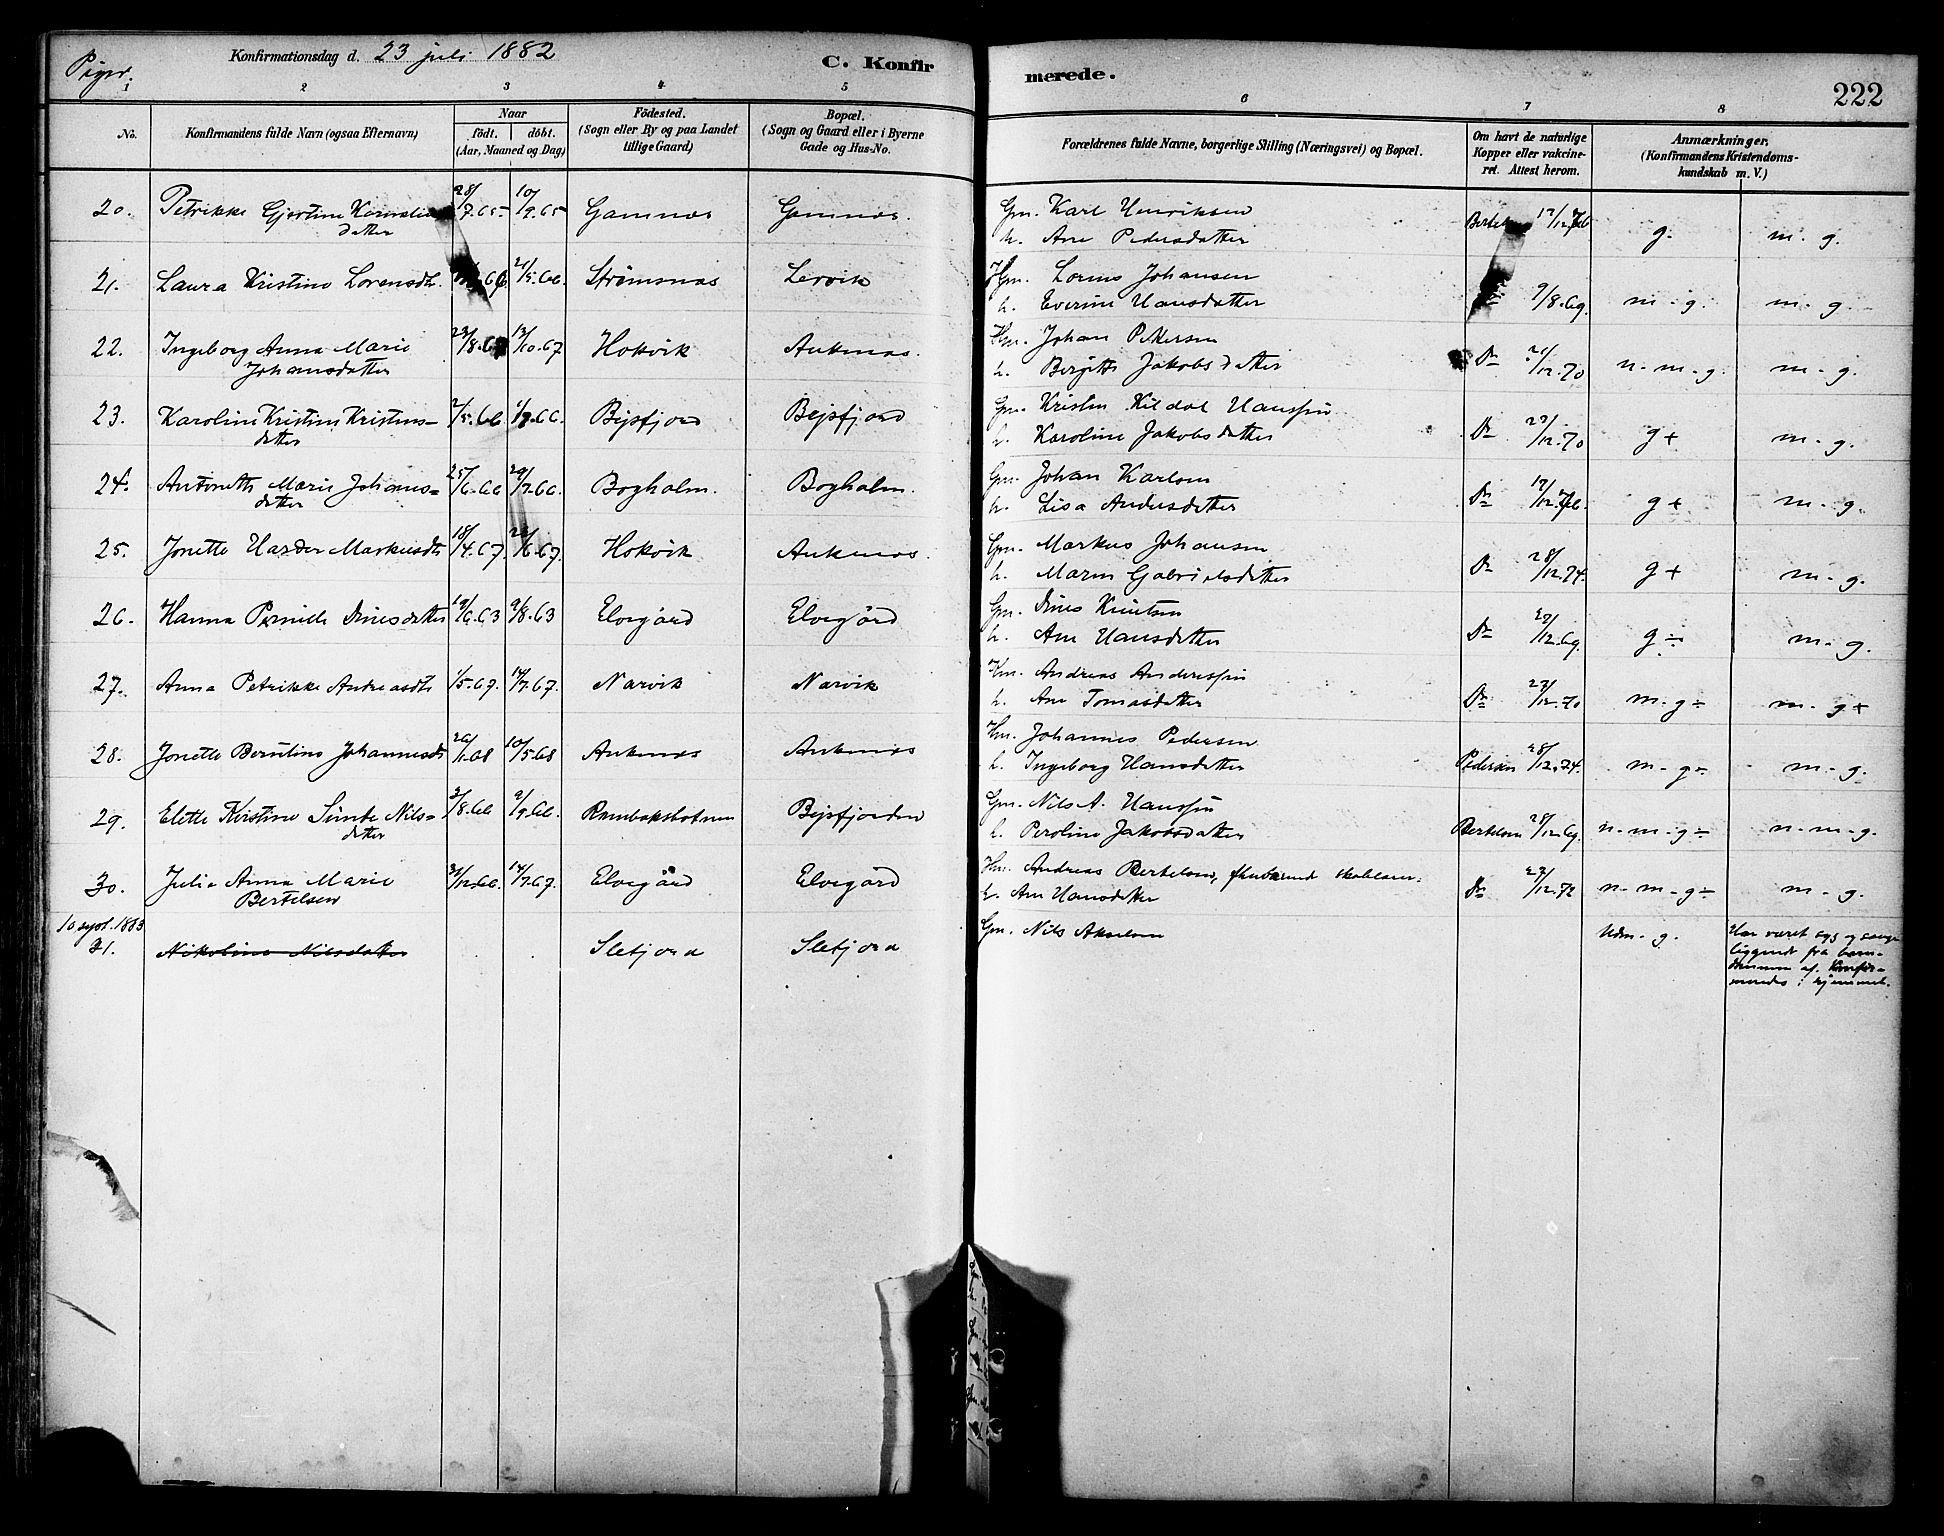 Piger.
Konfirmationsdag d. 23 juli 1882
C. Konfirmerede.
222
1 2 3 4 5 6 7 8
No.
Konfirmandens fulde Navn (ogsaa Efternavn)
Naar
født. døbt.
(Aar, Maaned og Dag)
Fødested.
(Sogn eller By og paa Landet
tillige Gaard)
Bopæl.
(Sogn og Gaard eller i Byerne
Gade og Hus-No.
Forældrenes fulde Navne, borgerlige Stilling (Næringsvei) og Bopæl.
Om havt de naturlige
Kopper eller vakcineret. Attest herom.
Anmærkninger,
(Konfirmandens Kristendomskundskab m. V.)
20. Petrikke Gjertine 28/7.65 10/9.65 Gamnes Gamnes. Gm. Karl Henriksen 17/12 g. m. g.
datter h. Ane Pedersdatter
21. Laura Kristine Lorensdt. 66 21/5.66. Strømsnes Lervik Lorens Johansen 9/8.69. m. g. m. g.
h. Everine Hansdatter
22. Ingeborg Anna Marie 23/8.67 13/10.67 Hokvik Ankenes. Hm. Johan Pettersen Do 21/12.70 n. m. g. m. g.
Johansdatter h. Birgitte Jakobsdatter
23. Karoline Kristine Kristens- 2/5.66 Bejsfjord Bejsfjord Gm. Kristen Kildal Hanssen Do 29/12.70 g + m. g.
datter h. Karoline Jakobsdatter
24. Antonette Marie Johans- 25/6.66 29/7.66. Bogholm. Bogholm. Gm. Johan Karlsen Do 17/12 g + m. g.
datter h. Lisa Andersdatter
25. Jonette Harder Markusdt. 18/4.67. Hokvik Ankenes. Gm. Markus Johansen Do 28/12.74. g + m. g.
h. Maren Gabrielsdatter
26. Hanna Pernille Dinesdatter 19/6.63 9/8.63 Elvegård Elvegård Gm. Dines Knutsen Do 29/12.69. g ÷ m. g.
h. Ane Hansdatter
27. Anna Petrikke Andreasdt. 1/5.67. 14/7.67. Narvik Narvik Hm. Andreas Anderssen Do 27/12.70 m. g ÷ m. g +
h. Ane Tomasdatter
28. Jonette Berntine Johannesdt 26/1.68 10/5.68 Ankenes Ankenes Hm. Johannes Pedersen Pedersen 28/12.74. m. g ÷ m. g.
h. Ingeborg Hansdatter
29. Elette Kristine Nils- 3/8.66 9/9.66. Rombaksbotnen Bejsfjorden Gm. Nils A. Hanssen Bertelsen 28/12.69. n. m. g ÷ n. m. g.
datter h. Peroline Jakobsdatter
30. Julie Anna Marie 31/12.66. 14/7.67. Elvegård Elvegård Hm. Andreas Bertelsen, Do 27/12.72 n. m. g ÷ m. g.
Bertelsen h. Ane Hansdatter
10 sept. 1883
31. Nikoline Nilsdatter Sletjord Sletjord Gm. Nils Akselsen Udm. g. Har været syg og
liggende fra barn-
dommen af. Konfir-
meredes i hjemmet.